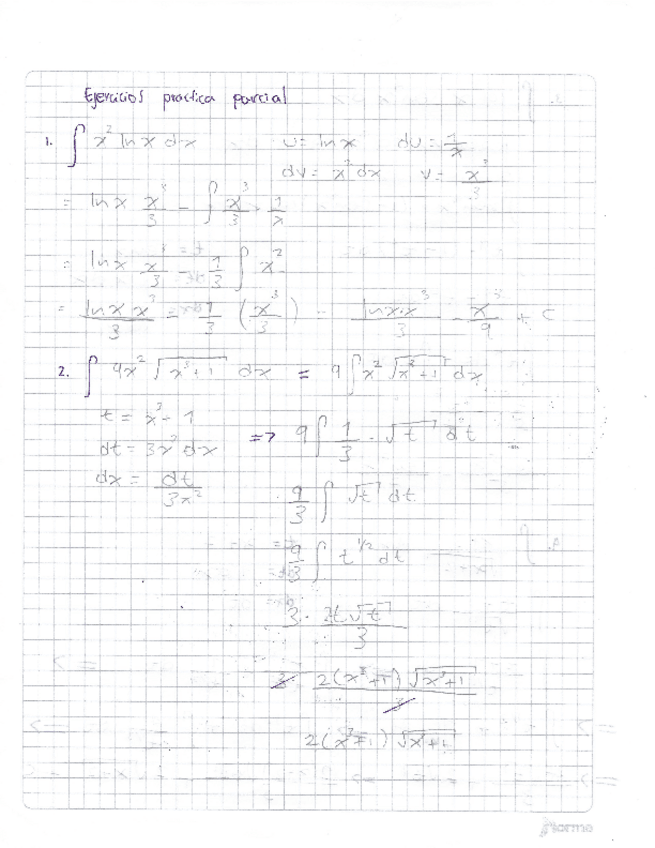 Ejercicios practica parcial
1. ∫ x² ln x dx u = ln x du = 1/x
dv = x² dx v = x³/3
= ln x x³/3 - ∫ x³/3 · 1/x
= ln x x³/3 - 1/3 ∫ x²
= ln x x³/3 - 1/3 (x³/3) = ln x·x³/3 - x³/9 + C
2. ∫ 9x² √(x³+1) dx = 9 ∫ x² √(x³+1) dx
t = x³+1
dt = 3x² dx => 9 ∫ 1/3 · √t dt
dx = dt/3x²
9/3 ∫ √t dt
9/3 ∫ t^1/2 dt
3 · 2t√t/3
3 2(x³+1) √(x³+1)/3
2(x³+1) √(x³+1)
Norma